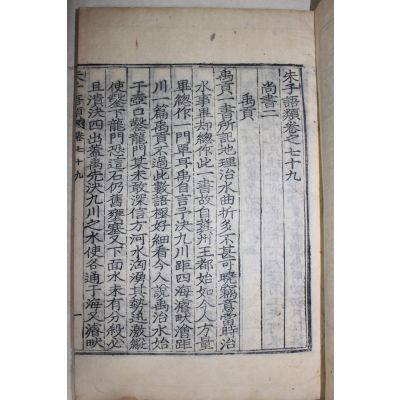 朱子語類卷之七十九
尚書二
禹貢
禹貢一書所記地理治水曲折多不甚可曉竊意當時治
水事畢却總作此一書故自冀州王都始如今人方量
畢總作一門單耳禹自言予決九川距四海濬畎澮距
川一篇禹貢不過此數語極好細看今人說禹治水始
于壺口鑿龍門某未敢深信方河水洶湧其勢迅激縱
使鑿下龍門恐這石仍舊壅塞又下面水未有分殺必
且潰決四出蓋禹先決九川之水使各通于海又濬畎
朱子語類卷七十九 一